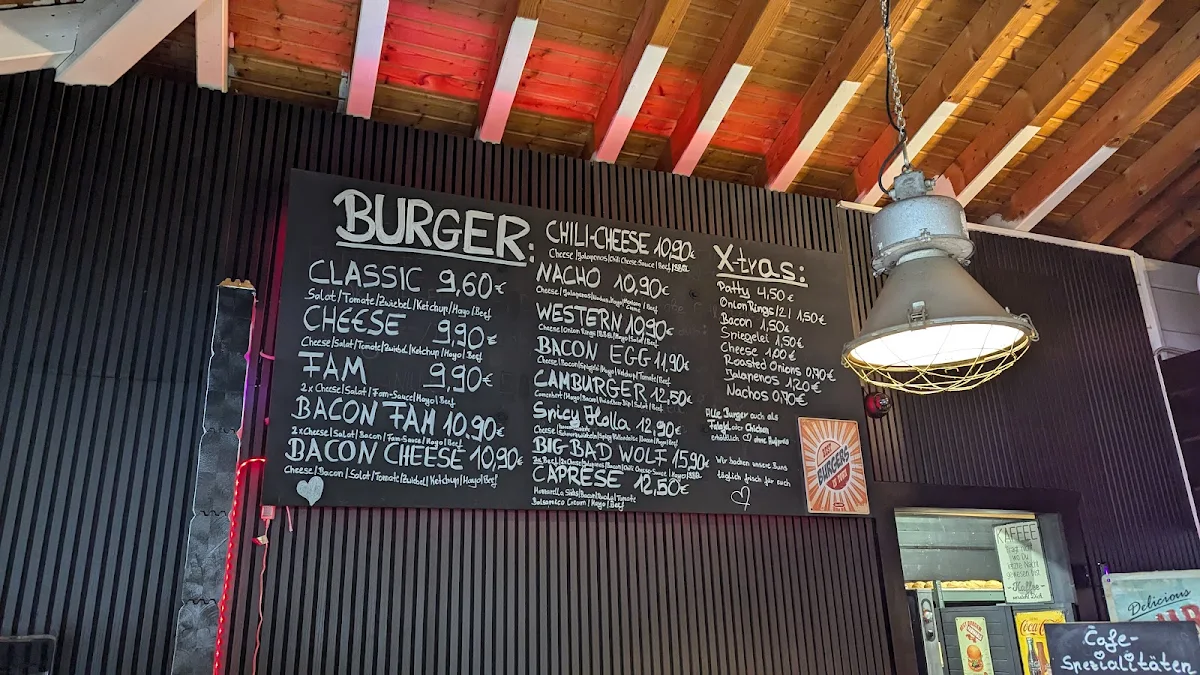 BURGER:
CLASSIC 9,60€
Salat/Tomate/Zwiebel/Ketchup/Mayo/Beef
CHEESE 9,90€
Cheese/Salat/Tomate/Zwiebel/Ketchup/Mayo/Beef
FAM 9,90€
2x Cheese/Salat/Fam-Sauce/Mayo/Beef
BACON FAM 10,90€
2x Cheese/Salat/Bacon/Fam-Sauce/Mayo/Beef
BACON CHEESE 10,90€
Cheese/Bacon/Salat/Tomate/Zwiebel/Ketchup/Mayo/Beef
CHILI-CHEESE 10,90€
Cheese/Jalapenos/Chili Cheese-Sauce/Beef/
NACHO 10,90€
Cheese/Jalapenos/Nachos/
WESTERN 10,90€
Cheese/Onion Rings/
BACON EGG 11,90€
Cheese/Bacon/Spiegelei/Mayo/Ketchup/Tomate/Beef
CAMBURGER 12,50€
Camembert/Mayo/Bacon/
Spicy Holla 12,90€
BIG BAD WOLF 15,90€
2x Beef/2x Cheese/Jalapenos/Bacon/Chili Cheese-Sauce/Mayo/
CAPRESE 12,50€
Mozzarella Sticks/Bacon/Rucola/Tomate
Balsamico Cream/Mayo/Beef
X-tras:
Patty 4,50€
Onion Rings/2/ 1,50€
Bacon 1,50€
Spiegelei 1,50€
Cheese 1,00€
Roasted Onions 0,90€
Jalapenos 1,20€
Nachos 0,90€
Alle Burger auch als
Falafel oder Chicken
erhältlich ohne Aufpreis
Wir backen unsere Buns
täglich frisch für euch
BURGERS
KAFFEE
Fragt nicht
wo Du
letzte Nacht
gewesen bist
- Kaffee -
Coca-Cola
Delicious
Cafe-
Spezialitäten